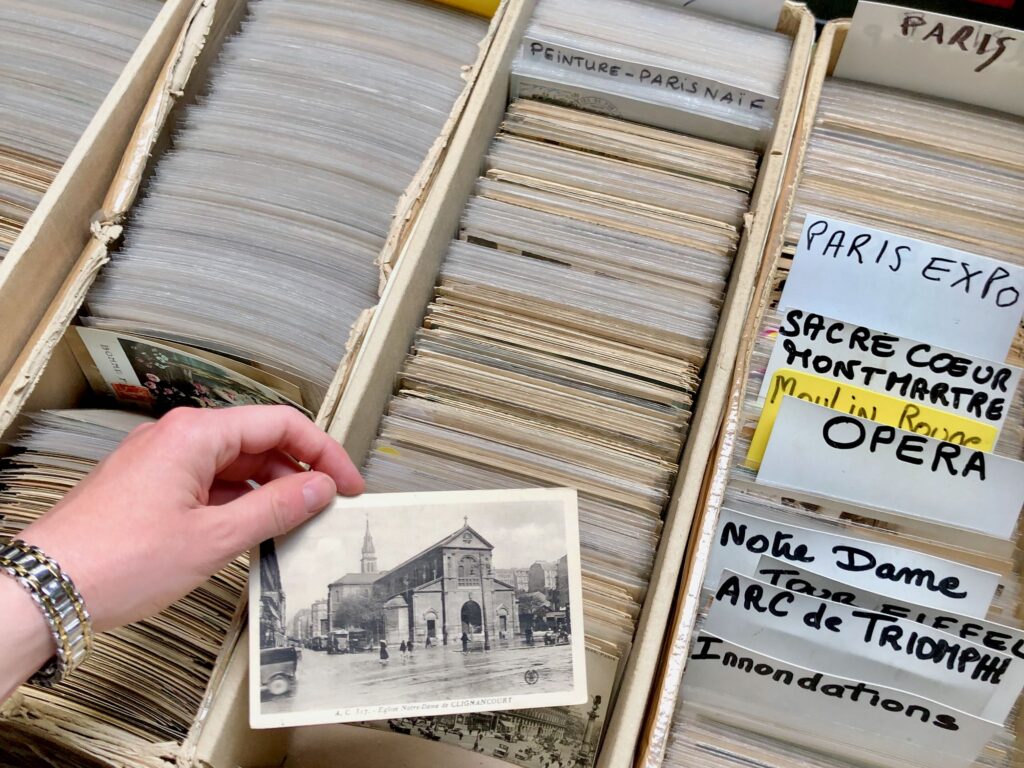 PEINTURE-PARIS NAÏF
PARIS
PARIS EXPO
SACRÉ CŒUR
MONTMARTRE
Moulin Rouge
OPERA
Notre Dame
TOUR EIFFEL
ARC de TRIOMPHE
Innondations
BONNE
Eglise Notre-Dame de CLIGNANCOURT